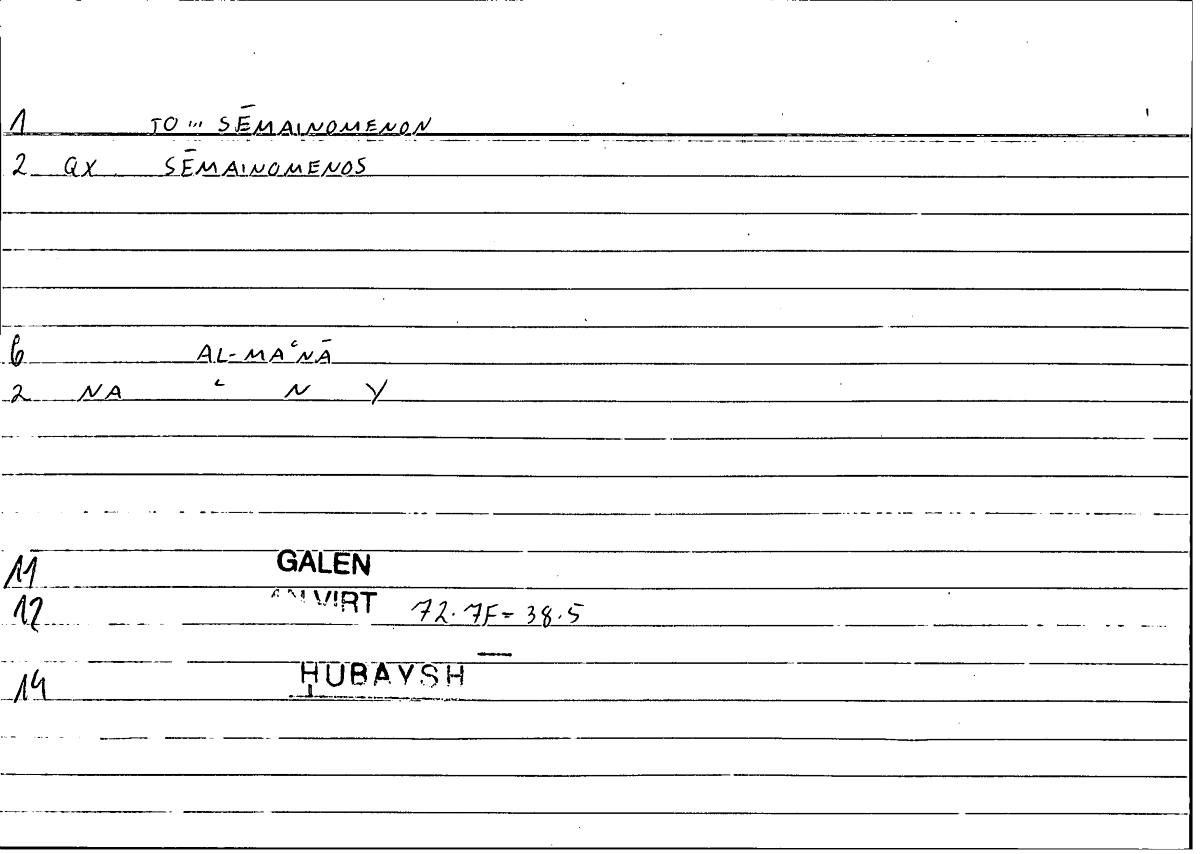 1 TO ... SĒMAINOMENON
2 QX SĒMAINOMENOS
6 AL-MAʿNĀ
2 NA ʿ N Y
11 GALEN
12 AN VIRT 72.7F = 38.5
14 ḤUBAYSH